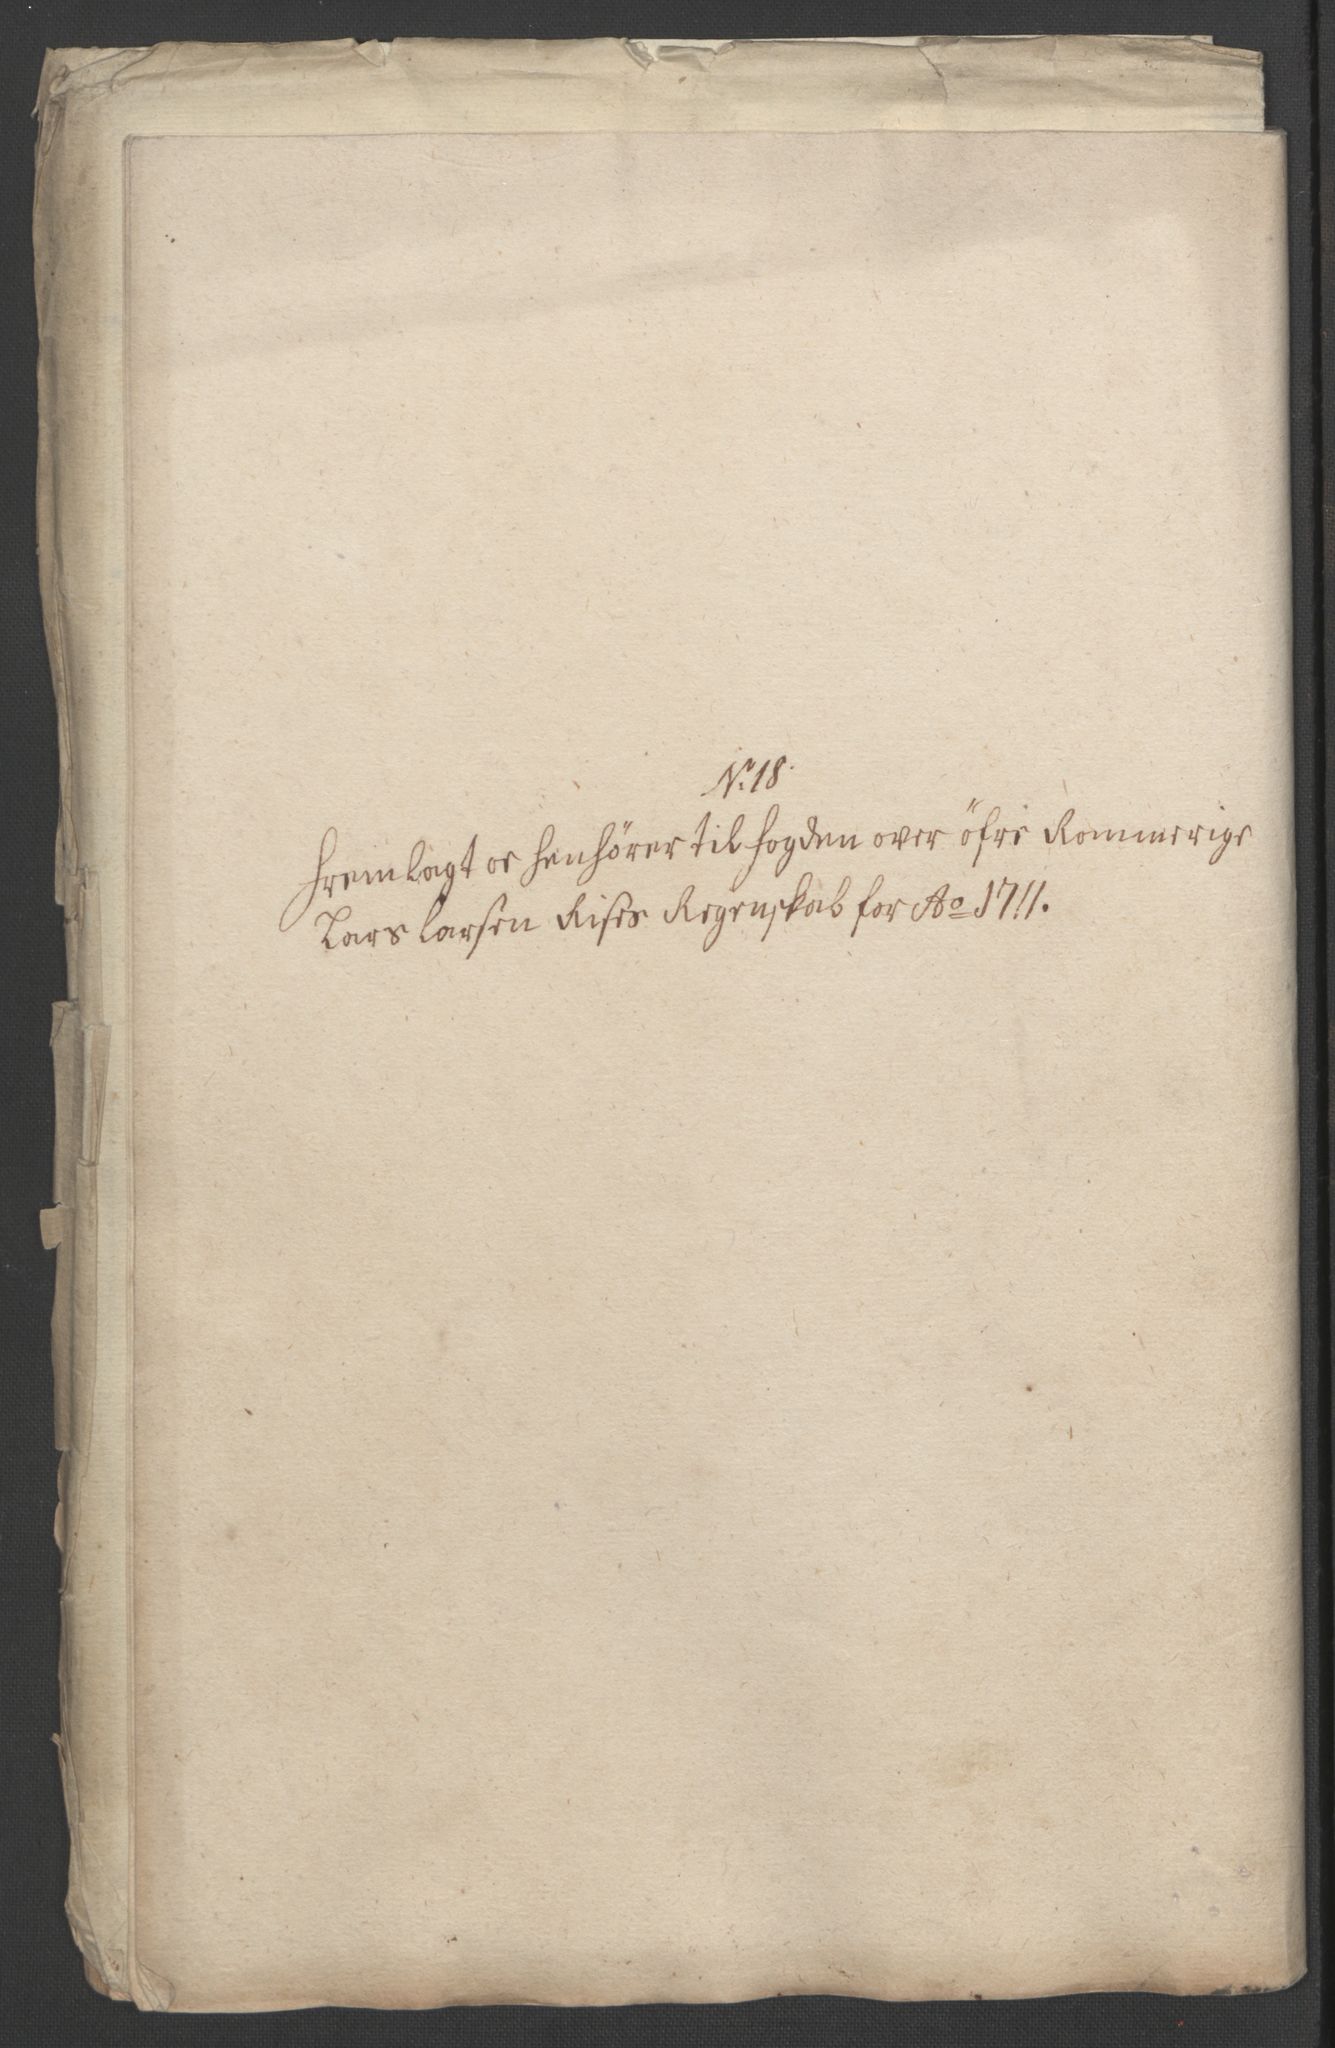 No 18.
Fremlagt oc henhörer til fogden over öfre Rommerige
Lars Larsen Rises Regenskab for Ao 1711.